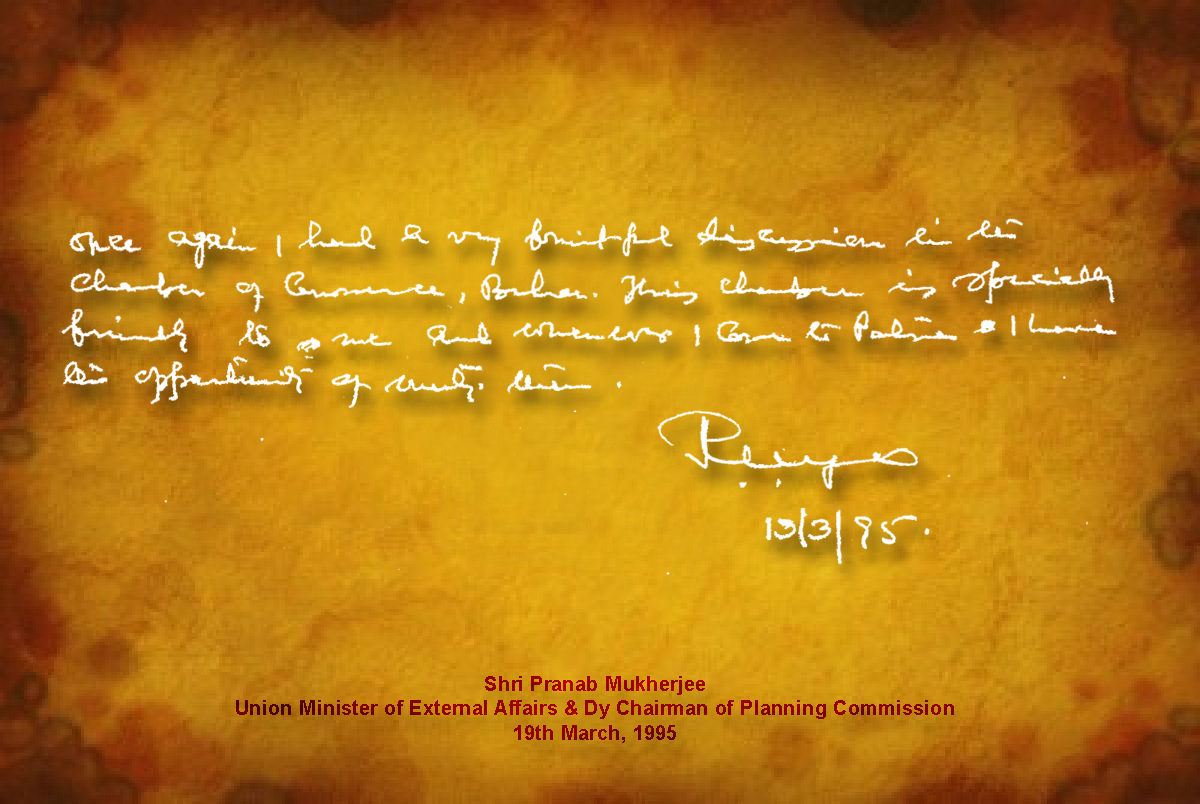 once again I had a very fruitful discussion in the
Chamber of Commerce, Bihar. This chamber is specially
friendly to me and whenever I come to Patna I have
the opportunity of meeting them.
13/3/95.
Shri Pranab Mukherjee
Union Minister of External Affairs & Dy Chairman of Planning Commission
19th March, 1995